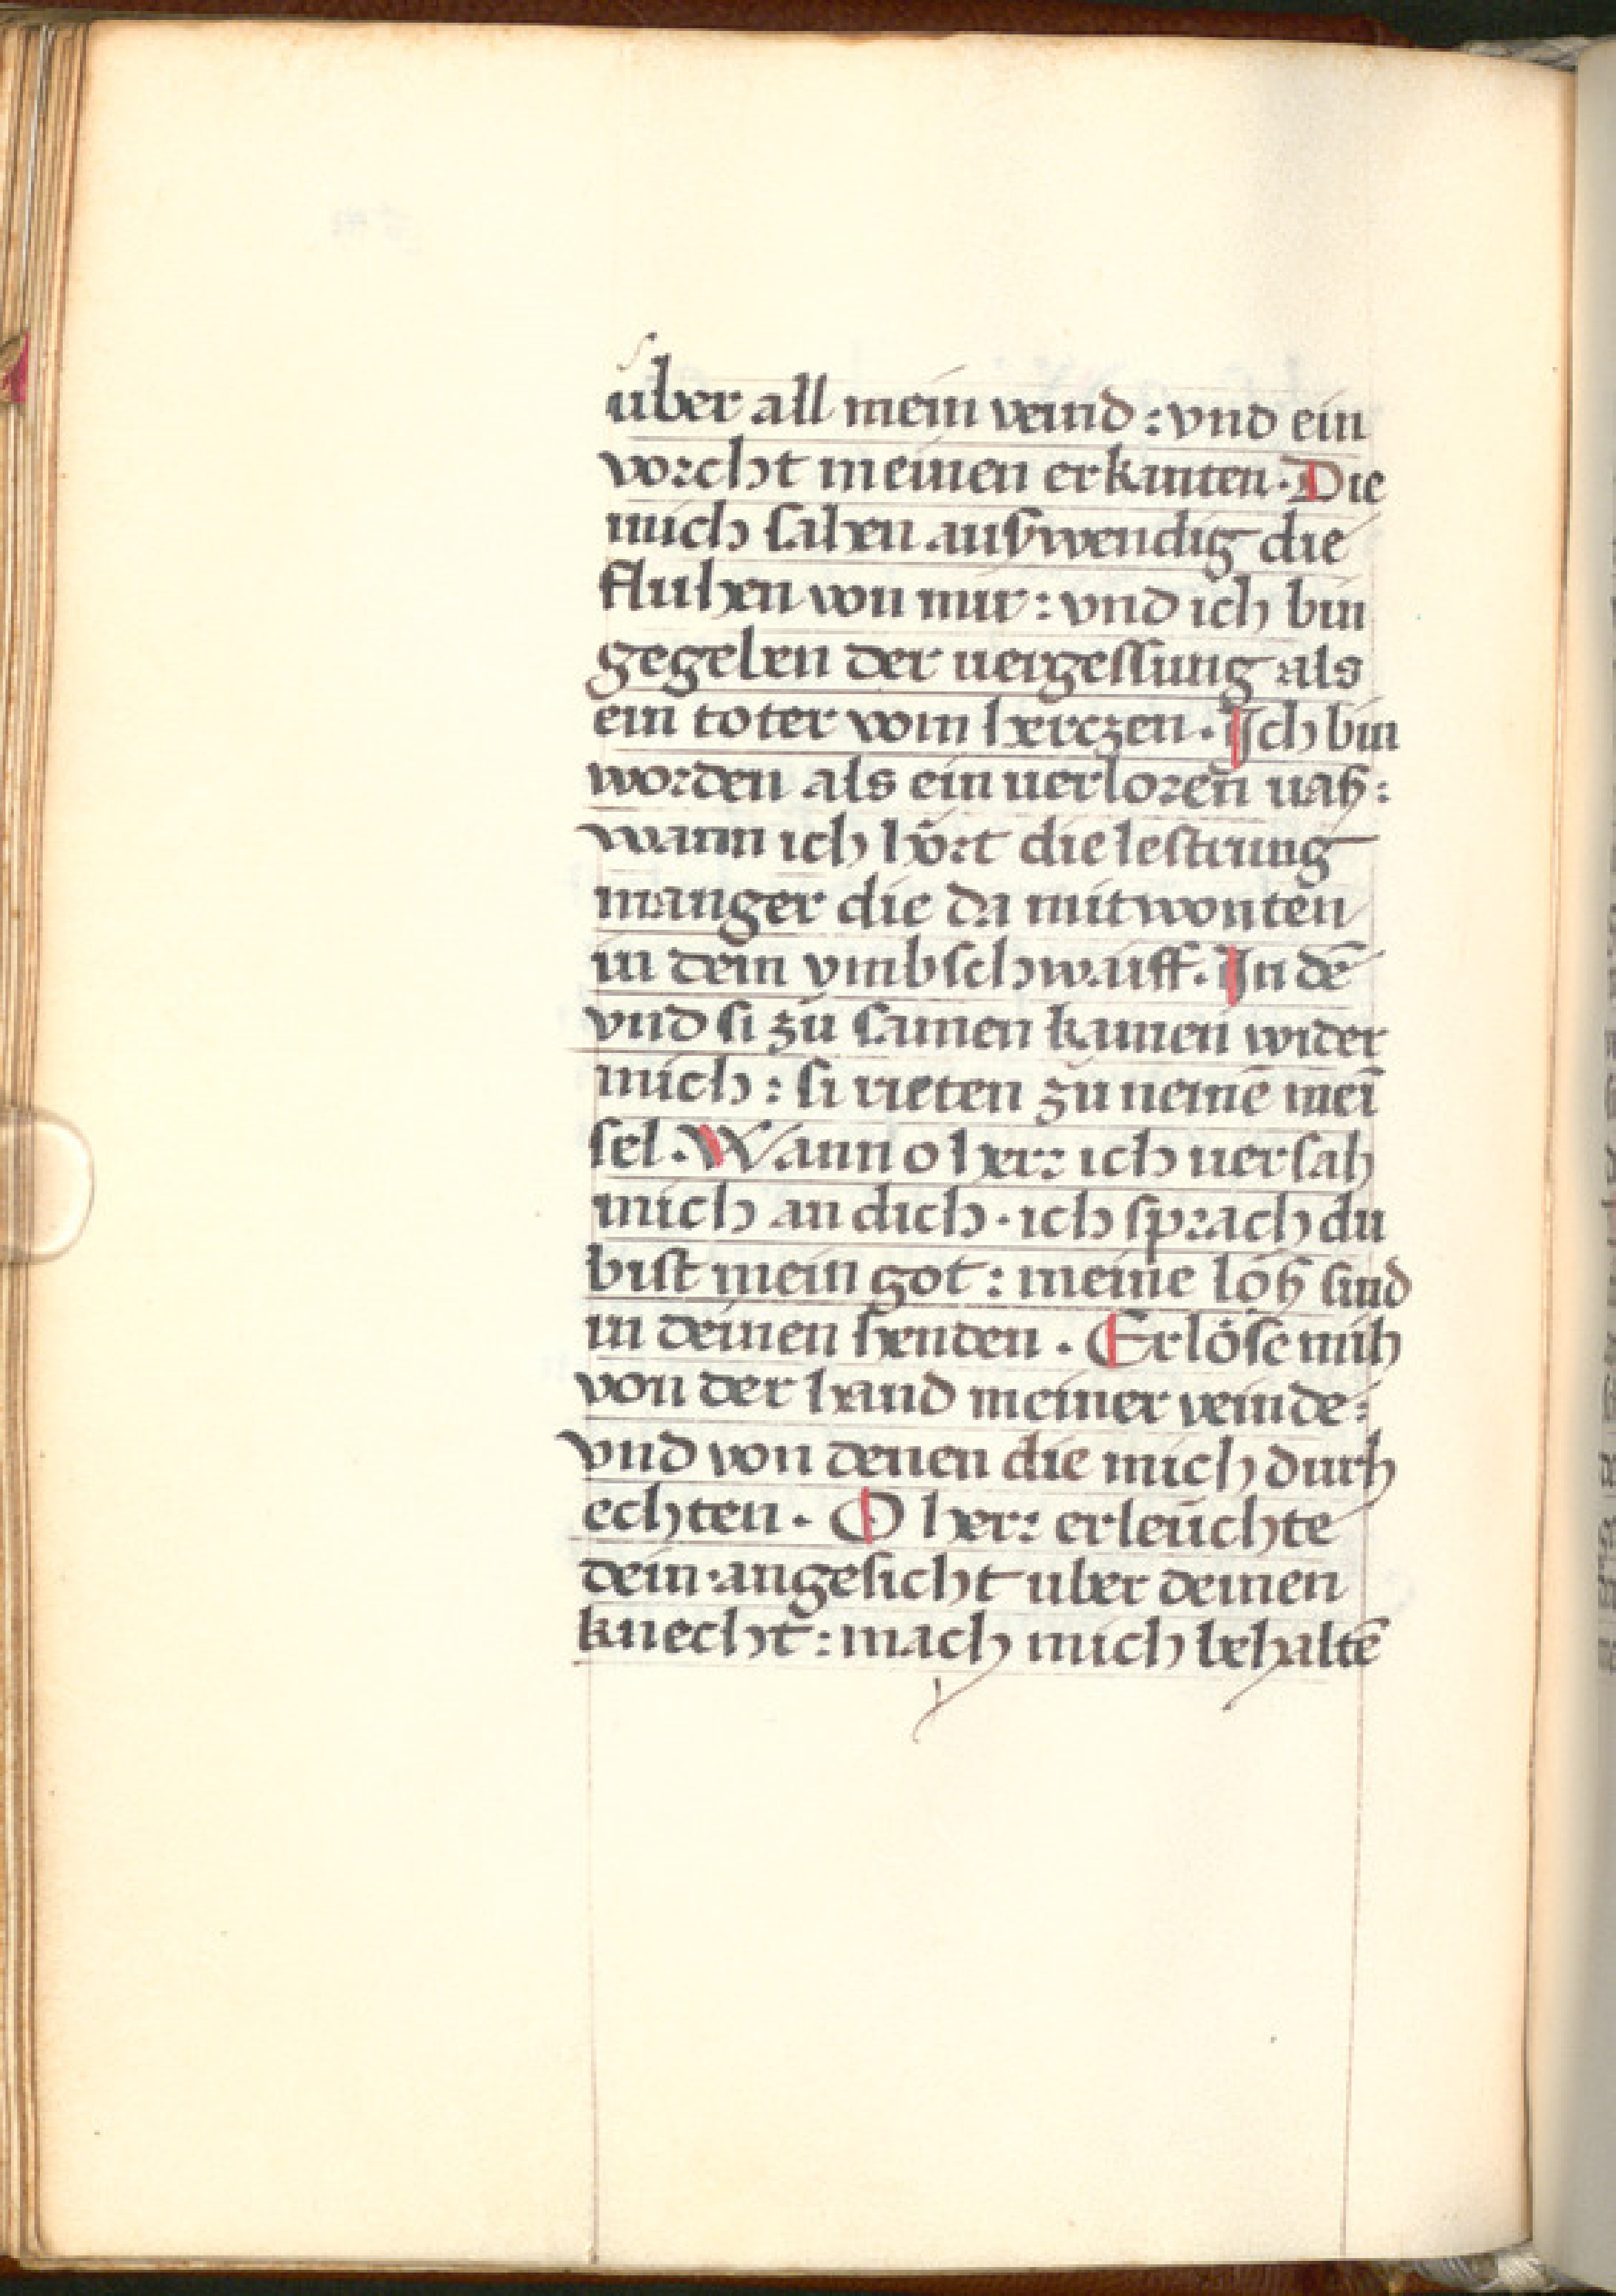 über all mein veind : vnd ein
vorcht meinen erkanten · Die
mich sahen auswendig die
fluhen von mir : vnd ich bin
gegeben der uergessung als
ein toter vom herczen · Ich bin
worden als ein uerloren̄ uaß :
wann ich hört die lestrung
manger die da mitwonten
in dem vmbschwaiff. In dē
vnd si zů samen kamen wider
mich : si rieten zů nemē meī
sel · Wann o herr ich uersah
mich an dich · ich sprach du
bist mein got : meine löß sind
in deinen henden · Erlöse mich
von der hand meiner veinde :
vnd von denen die mich durch
echten · O herr erleüchte
dein angesicht uber deinen
knecht : mach mich behaltē